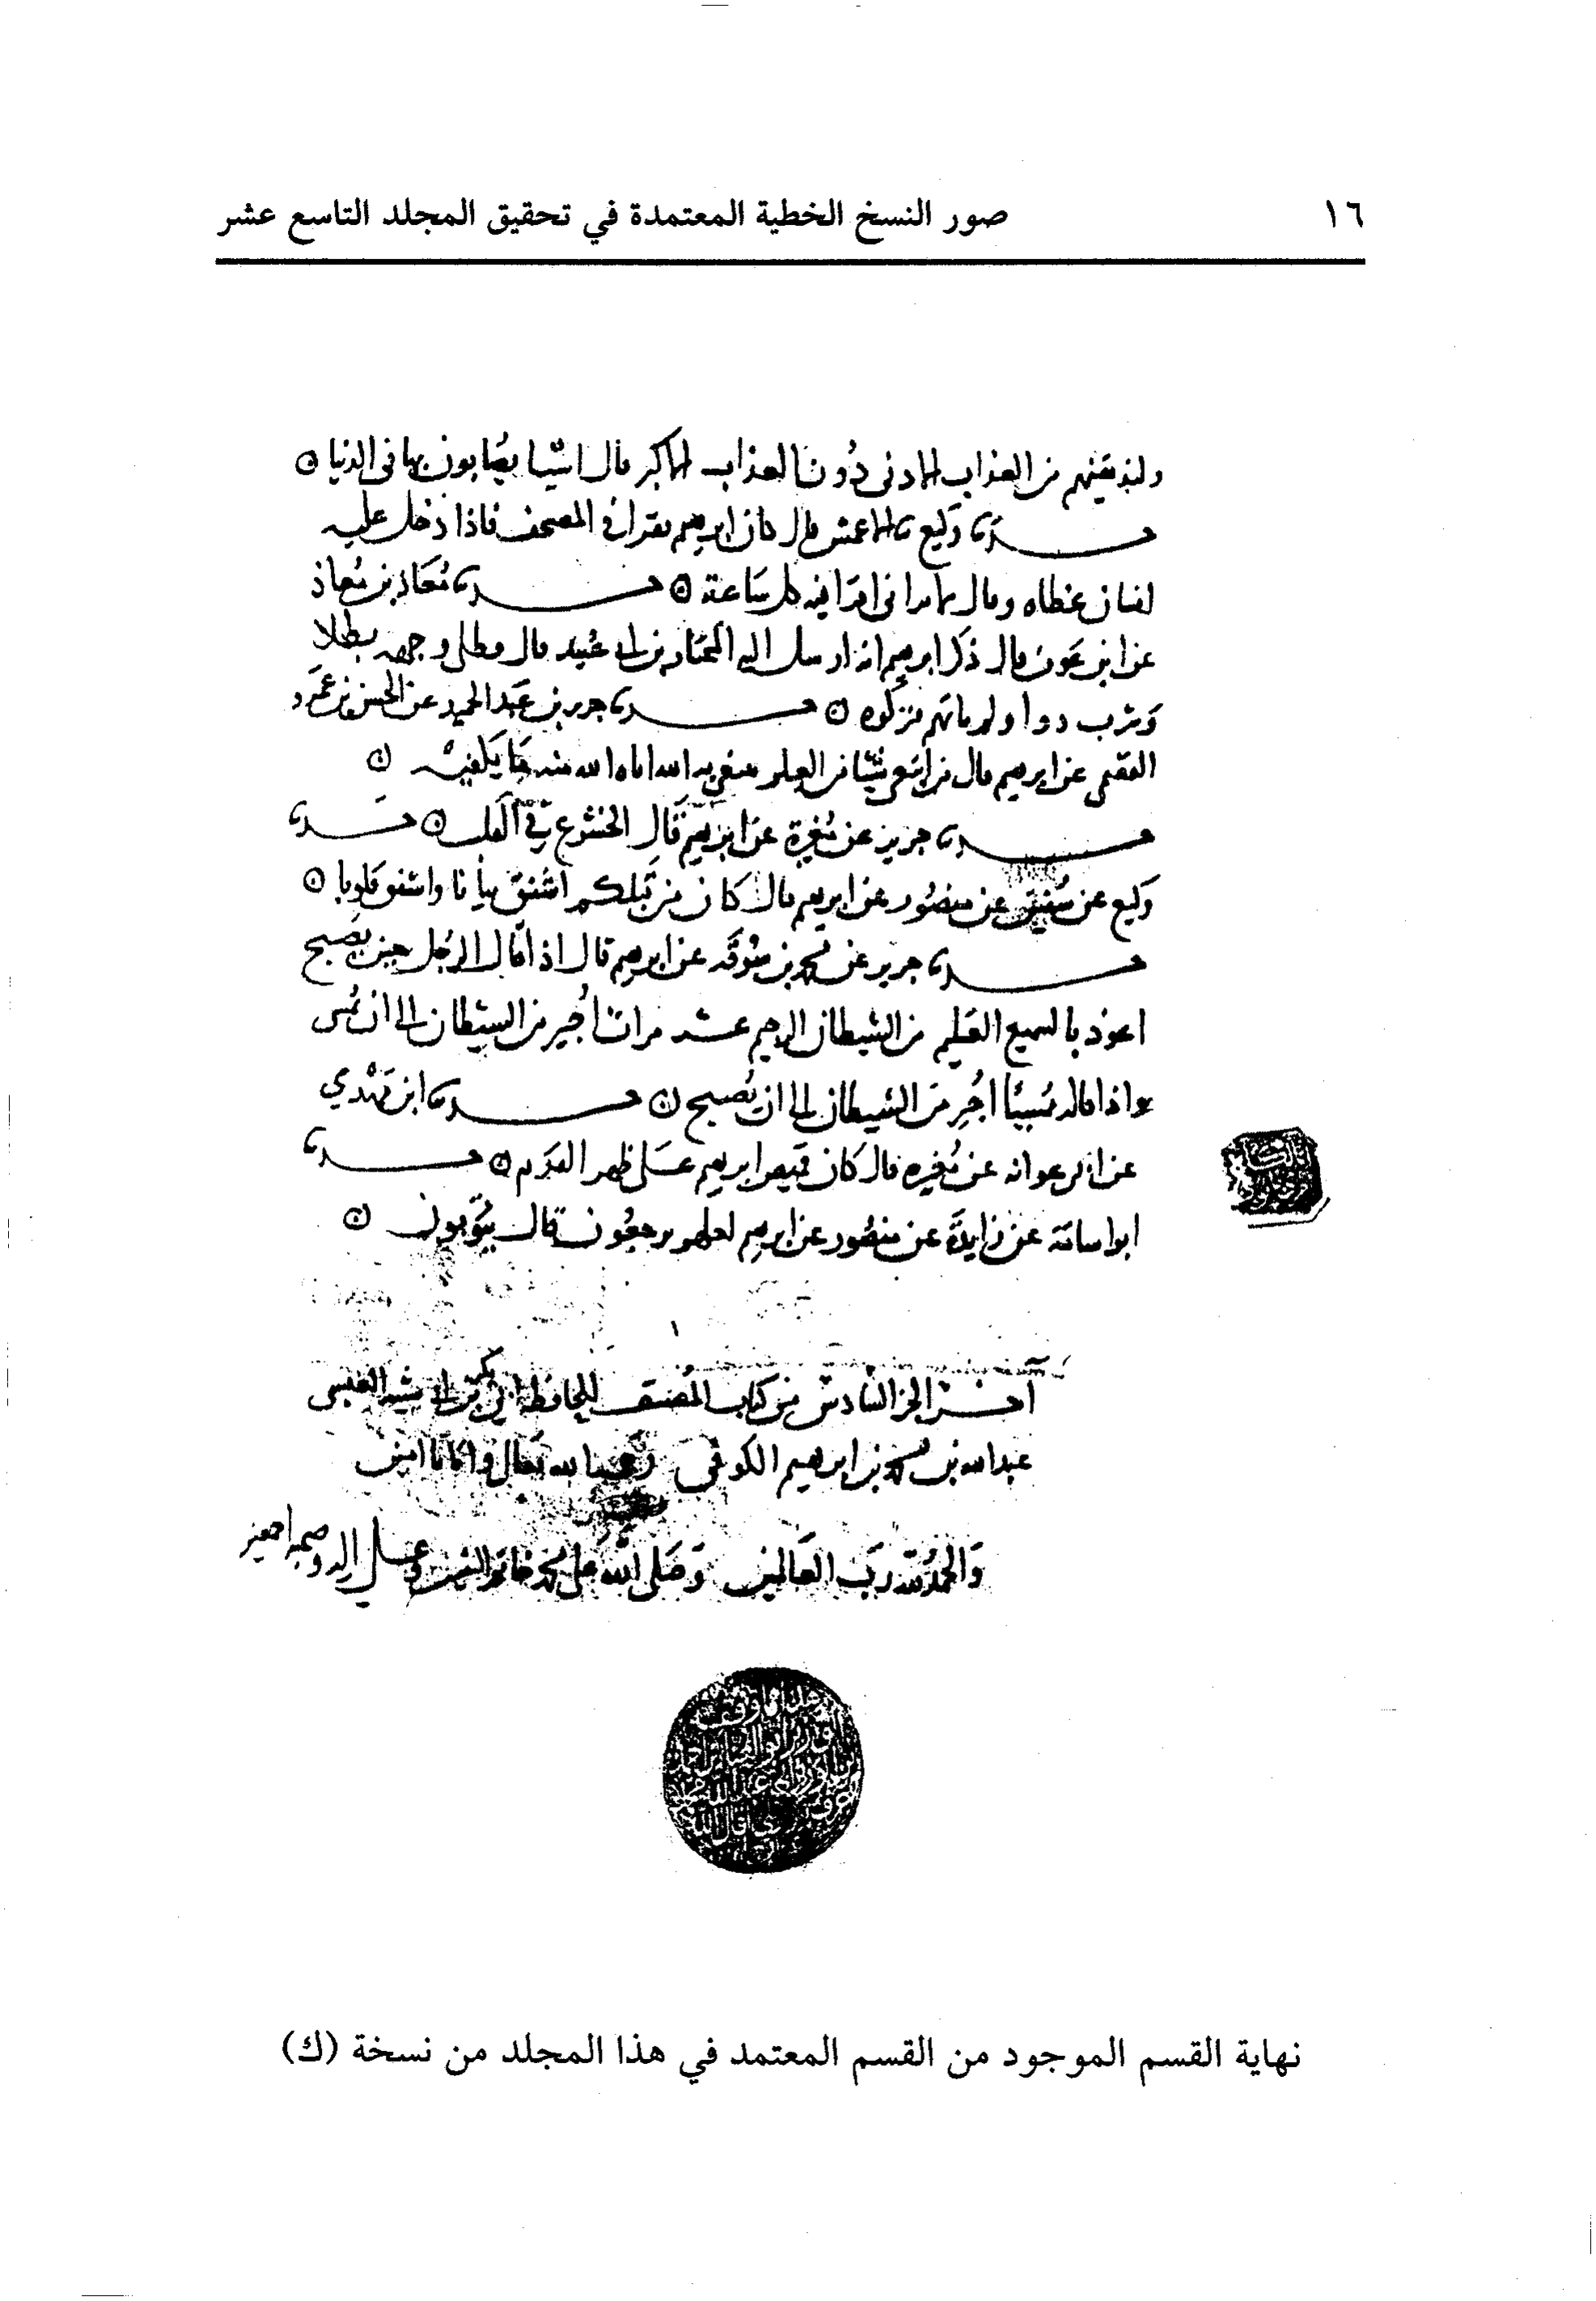 ١٦
صور النسخ الخطية المعتمدة في تحقيق المجلد التاسع عشر
ولنذيقنهم من العذاب الادنى دون العذاب الاكبر قال اشيا يصابون بها في الدنيا
حدثنا وكيع نا الاعمش قال كان ابرهيم يقرا في المصحف فاذا دخل عليه
انسان غطاه وقال لا يراني اقرا فيه كل ساعة حدثنا معاذ بن معاذ
عن ابن عون قال ذكر ابرهيم انه ارسل اليه المختار بن ابي عبيد قال فطلى وجهه بطلا
وشرب دوا ولم ياتهم فتركوه حدثنا جرير بن عبد الحميد عن الحسن بن عمرو
الفقمي عن ابرهيم قال من ابتغى شيئا من العلم يبتغي به الله اتاه الله منه ما يكفيه
حدثنا جرير عن مغيرة عن ابرهيم قال الخشوع في القلب حدثنا
وكيع عن سفين عن منصور عن ابرهيم قال كان من قبلكم اشفق ثيابا واشفق قلوبا
حدثنا جرير عن محمد بن سوقه عن ابرهيم قال اذا قال الرجل حين يصبح
اعوذ بالسميع العليم من الشيطان الرجيم عشر مرات اجير من الشيطان الى ان يمسي
واذا قاله ممسيا اجير من الشيطان الى ان يصبح حدثنا ابن مهدي
عن ابي عوانه عن مغيره قال كان قميص ابرهيم على ظهر القدم حدثنا
ابو اسامة عن زايدة عن منصور عن ابرهيم لعلهم يرجعون قال يتوبون
آخر الجز السادس من كتاب المصنف للحافظ ابي بكر بن ابي شيبه العبسي
عبد الله بن محمد بن ابرهيم الكوفي رحمه الله تعالى وايانا امين
والحمد لله رب العالمين وصلى الله على محمد خاتم النبيين وعلى اله وصحبه اجمعين
نهاية القسم الموجود من القسم المعتمد في هذا المجلد من نسخة (ك)